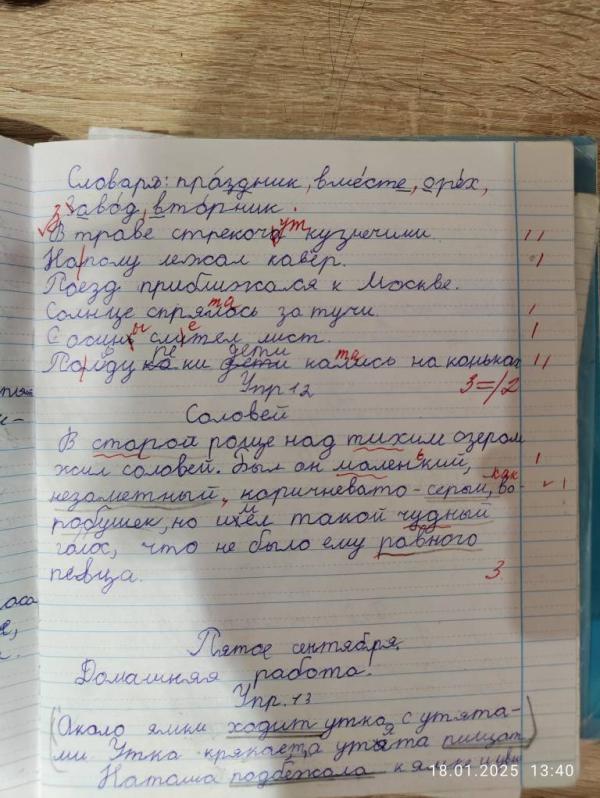 Словаря: праздник, вместе, орех,
завод, вторник.
В траве стрекочут кузнечики.
На полу лежал кавёр.
Поезд приближался к Москве.
Солнце спряталось за тучи.
С осины слетел лист.
По льду ка ки дети катались на коньках
3=/2
Упр 12
Соловей
В старой роще над тихим озером
жил соловей. Был он маленький,
незаметный, коричневато-серый, как во-
робушек, но имел такой чудный
голос, что не было ему равного
певца.
3
Пятое сентября.
Домашняя работа.
Упр. 13
(Около ямки ходит утка с утята-
ми. Утка крякает, а утята пищат)
Наташа подбежала к ямке и уви
18.01.2025 13:40